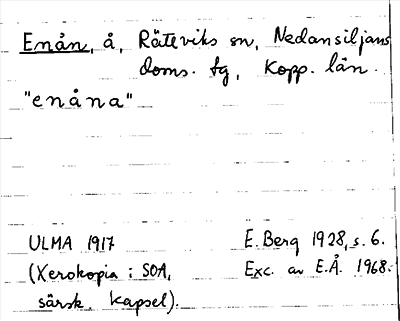 Enån, å, Rättviks sn, Nedansiljans
doms. tg, Kopp. län.
"enåna"
ULMA 1917 E. Berg 1928, s. 6.
(Xerokopia i SOA, Exc. av E.Å. 1968.
särsk. kapsel).